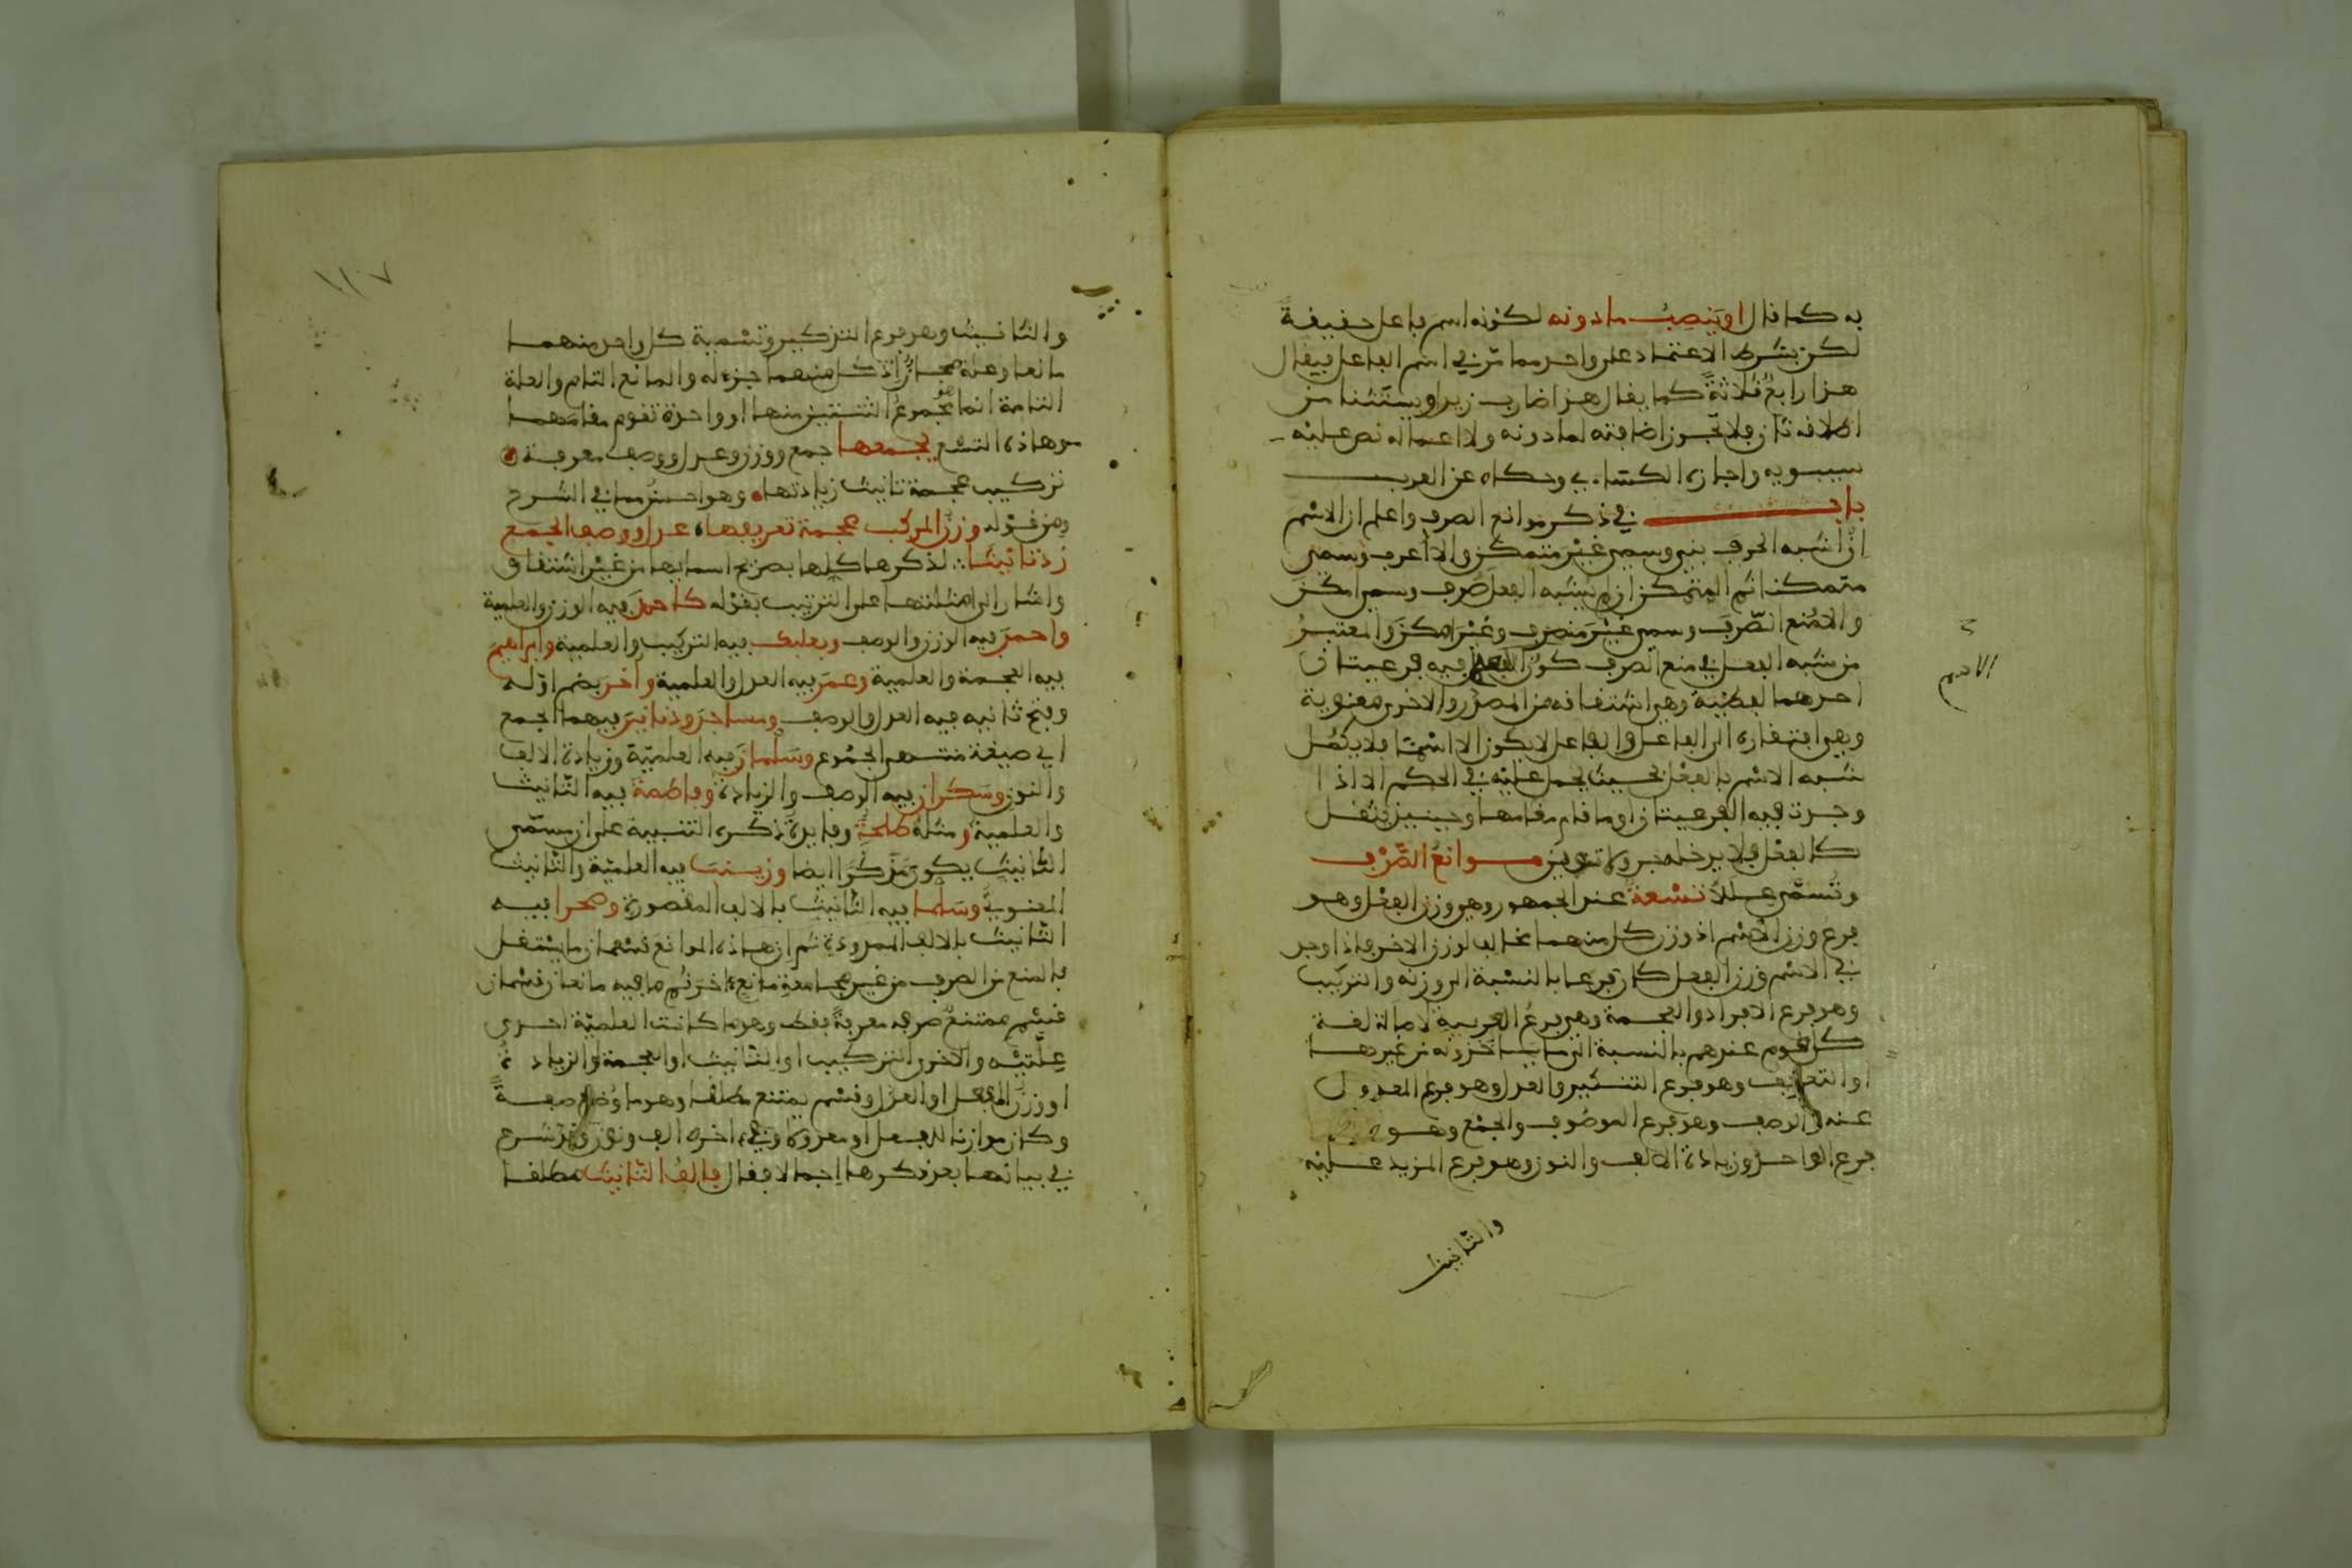 به كما قال او ينصب ما دونه لكونه اسم فاعل حقيقةً
لكن بشرط الاعتماد على واحد مما مرّ في اسم الفاعل فيقال
هذا رابعٌ ثلاثةً كما يقال هذا ضارب زيدا ويستثنا من
اطلاقه ثان فلا تجوز اضافته لما دونه ولا اعماله نص عليه
سيبويه واجازه الكسائي وحكاه عن العرب
باب في ذكر موانع الصرف واعلم ان الاسم
ان اشبه الحرف بني وسمي غير متمكن والا اعرب وسمي
متمكنا ثم المتمكن ان لم يشبه الفعل صُرِف وسمي امكن
والا مُنع الصّرف وسمي غير منصرف وغير امكن والمعتبر
من شبه الفعل في منع الصرف كون الاسم فيه فرعيتان
احدهما لفظية وهي اشتقاقه من المصدر والاخرى معنوية
وهي افتقاره الى الفاعل والفاعل لا يكون الا اسما فلا يكمُل
شبه الاسم بالفعل بحيث يحمل عليه في الحكم الا اذا
وجدت فيه الفرعيتان او ما قام مقامهما وحينيذ يثقل
كالفعل فلا يدخله جر ولا تنوين موانعُ الصَّرْف
وتُسمّى عللا تسْعةٌ عند الجمهور وهي وزن الفعل وهو
فرع وزن الاسم اذ وزن كل منهما مخالف لوزن الاخر فاذا وجد
في الاسم وزن الفعل كان فرعا بالنسبة الى وزنه والتركيب
وهو فرع الافراد والعجمة وهي فرع العربية لاصالة لغة
كل قوم عندهم بالنسبة الى ما ياخذونه من غيرها
والتعريف وهو فرع التنكير والعدل وهو فرع المعدول
عنه والوصف وهو فرع الموصوف والجمع وهو
فرع الواحد وزيادة الالف والنون وهو فرع المزيد عليه
والتانيث
الاسم
١١٧
والتانيث وهو فرع التذكير وتسمية كل واحد منهما
مانعا وعلة مجازٌ اذ كل منهما جزء له والمانع التام والعلة
التامة انما هو مجموع الثنتين منها او واحدة تقوم مقامهما
وهاذه التسع يجمعها جمع ووزن وعدل ووصف معرفة
تركيب عجمة تانيث زيادتها وهو احسن مما في الشرح
ومن قوله وزن المركب عجمة تعريفها عدل ووصف الجمع
زد تانيثا لذكرها كلها بصريح اسمايها من غير اشتقاق
واشار الى امثلتها على الترتيب بقوله كاحمدَ فيه الوزن والعلمية
واحمرَ فيه الوزن والوصف وبعلبك فيه التركيب والعلمية وابراهيم
فيه العجمة والعلمية وعمر فيه العدل والعلمية واُخَر بضم اوله
وفتح ثانيه فيه العدل والوصف ومساجد ودنانير فيهما الجمع
اي صيغة منتهى الجموع وسَلمان فيه العلميّة وزيادة الالف
والنون وسكران فيه الوصف والزيادة وفاطمة فيه التانيث
والعلمية ومثله طلحة وفايدة ذكره التنبيه على ان مسمّى
التانيث يكون مذكرا ايضا وزينب فيه العلميّة والتانيث
المعنوي وسَلما فيه التانيث بالالف المقصورة وصحرا فيه
التانيث بالالف الممدودة ثم ان هاذه الموانع قسمان ما يستقل
بالمنع من الصرف من غير مجامعة مانع اخر ثم ما فيه مانعان قسمان
قسم ممتنعٌ صرفه معرفةً فقط وهو ما كانت العلميّة احدى
عِلّتيْه والاخرى التركيب او التانيث او العجمة والزيادة
او وزن الفعل او العدل وقسم يمتنع مطلقا وهو ما وُضع صفةً
وكان موازنا للفعل او معدولا وفي اخره الف ونون وقد شرع
في بيانها بعد ذكرها اجمالا فقال فالف التانيث مطلقا